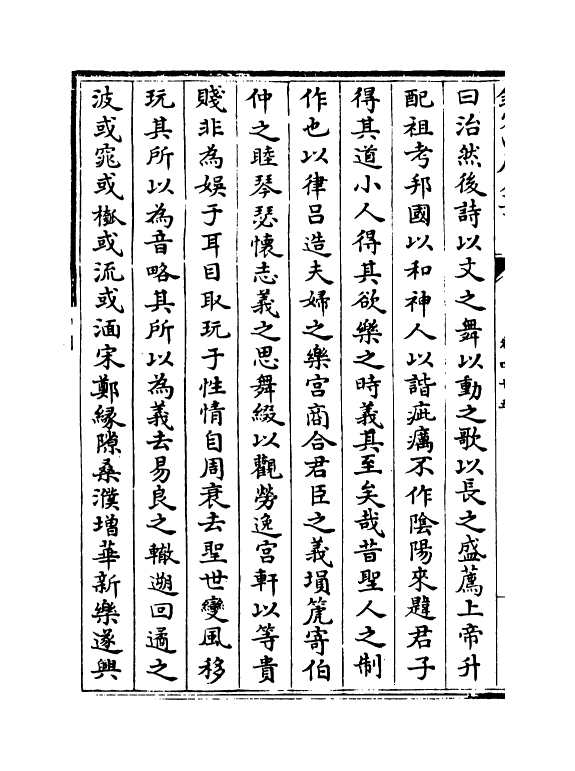 曰治然後詩以文之舞以動之歌以長之盛薦上帝升
配祖考邦國以和神人以諧疵癘不作陰陽來韙君子
得其道小人得其欲樂之時義其至矣哉昔聖人之制
作也以律呂造夫婦之樂宫商合君臣之義塤箎寄伯
仲之睦琴瑟懷志義之思舞綴以觀勞逸宫軒以等貴
賤非為娛于耳目取玩于性情自周衰去聖世變風移
玩其所以為音略其所以為義去易良之轍遡回遹之
波或窕或槬或流或湎宋鄭緣隙桑濮增華新樂遂興